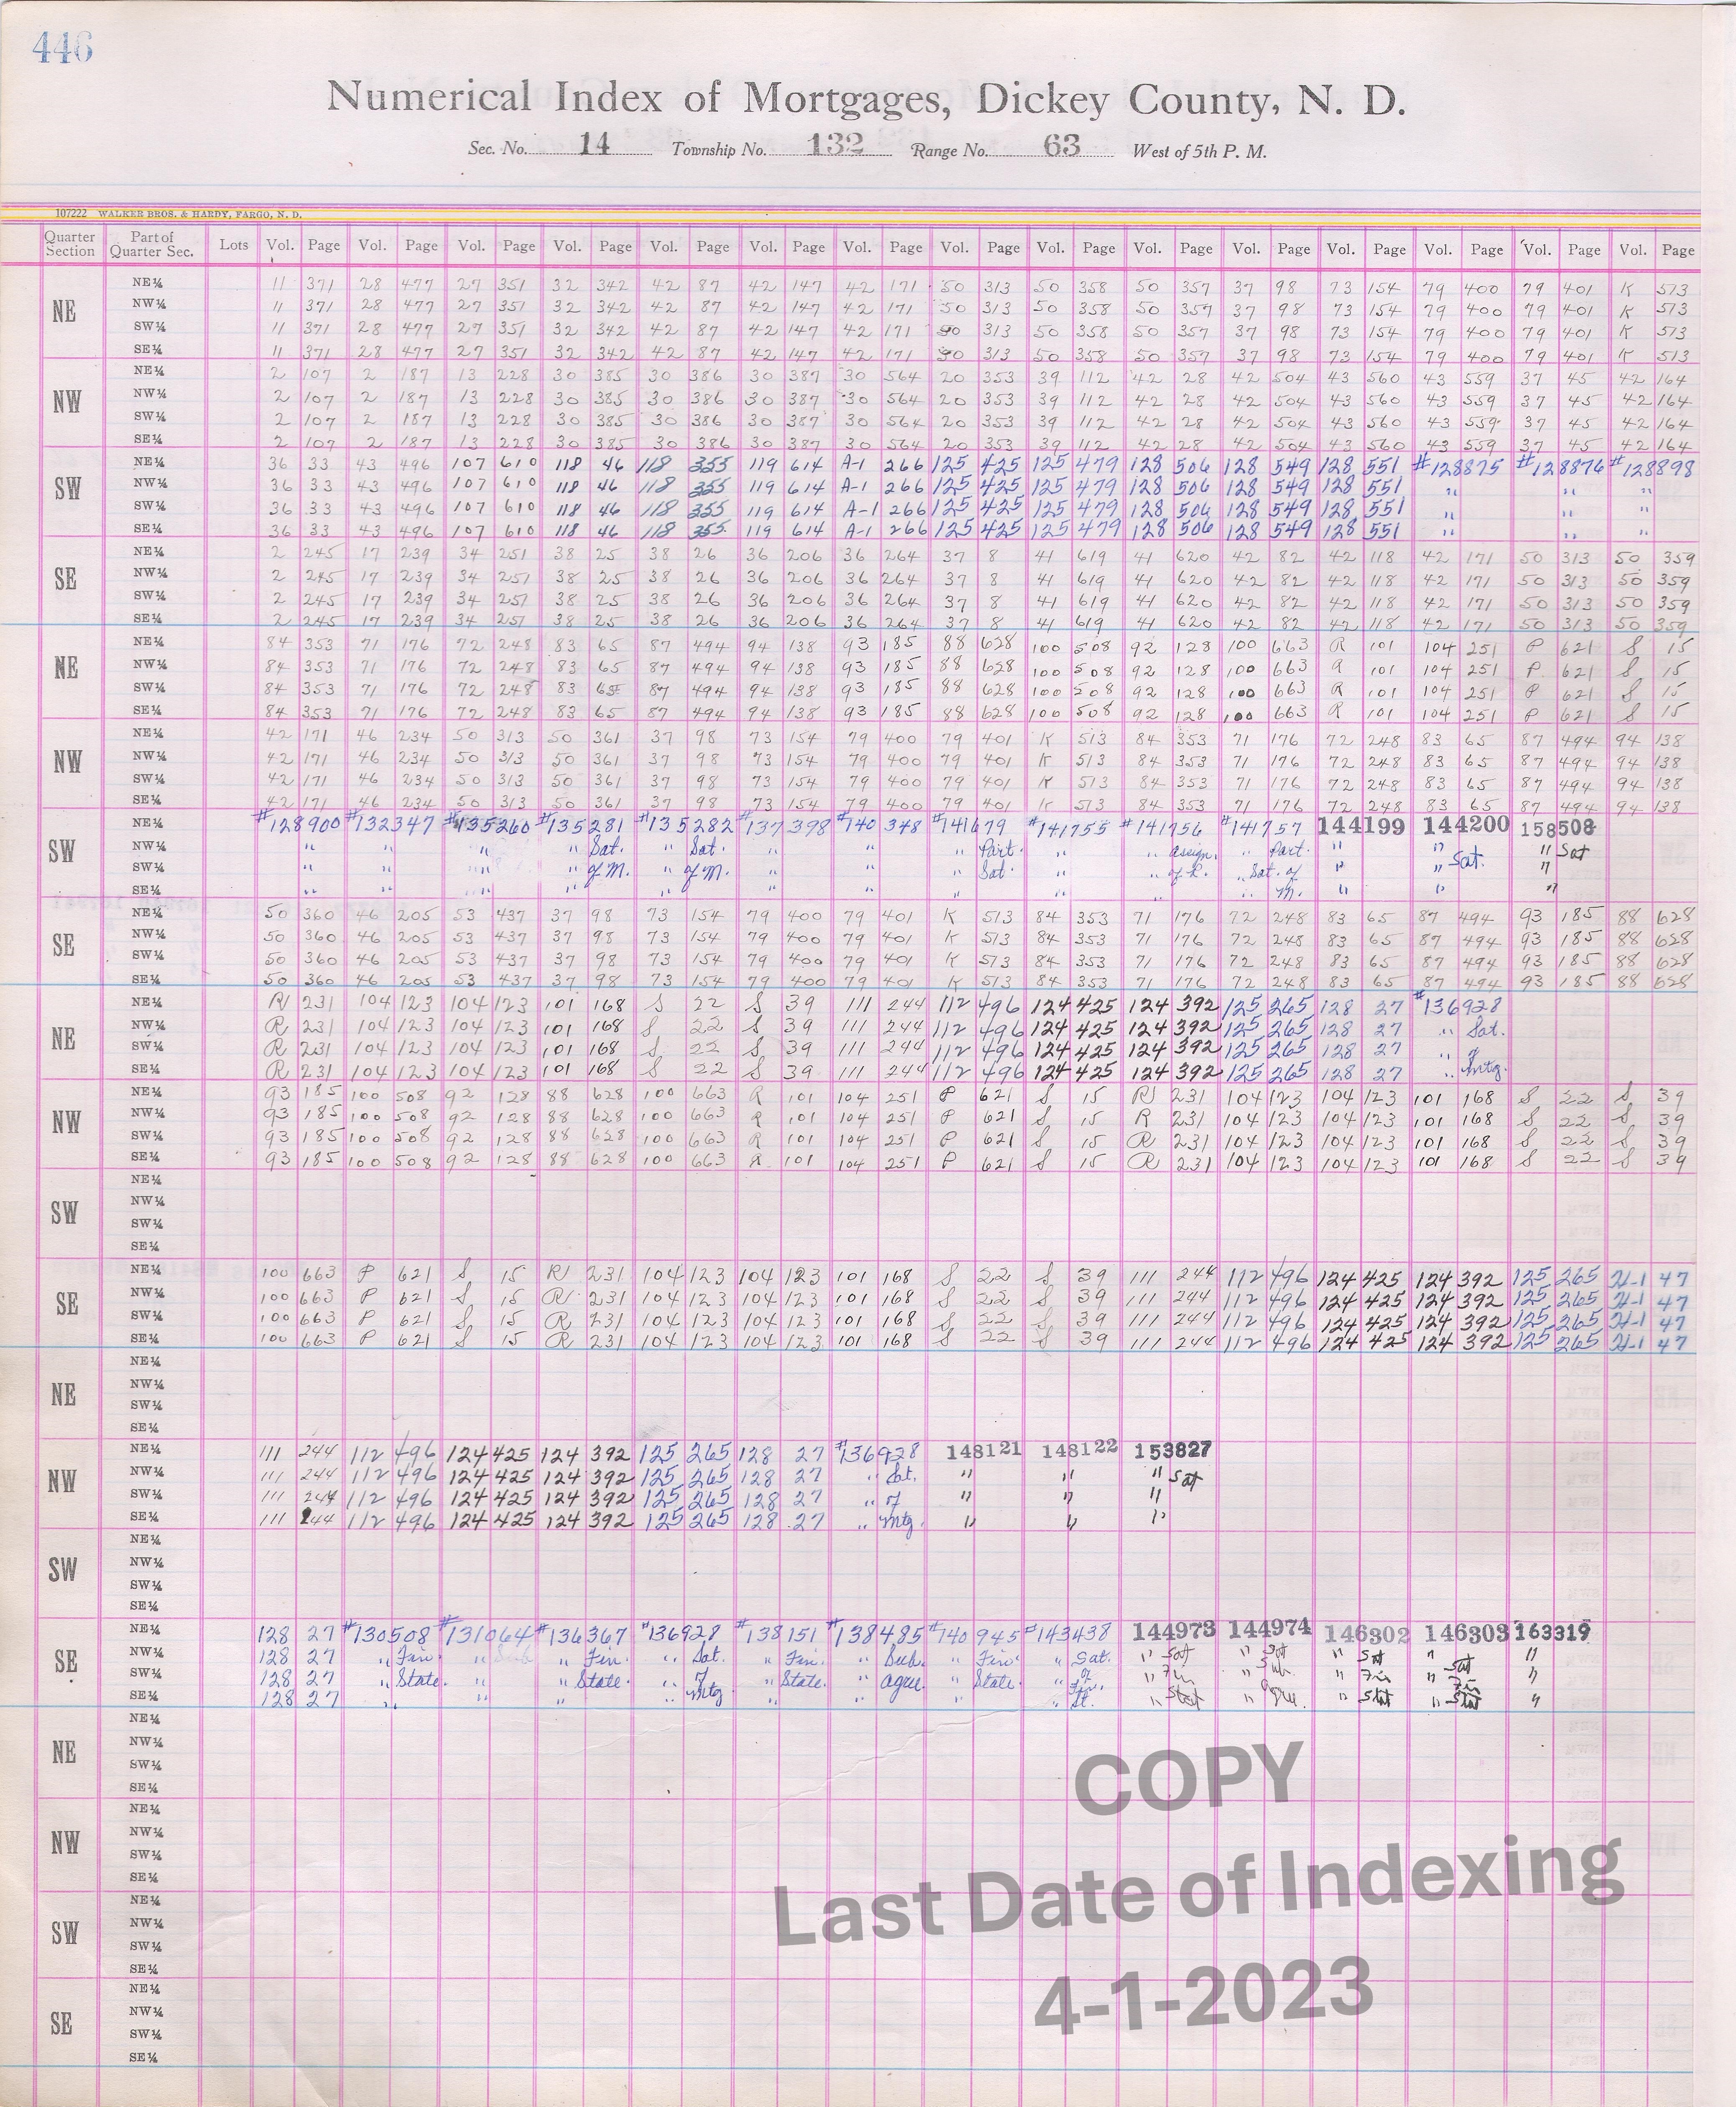 446
Numerical Index of Mortgages, Dickey County, N. D.
Sec. No. 14 Township No. 132 Range No. 63 West of 5th P. M.
107222 WALKER BROS. & HARDY, FARGO, N. D.
Quarter Section Part of Quarter Sec. Lots Vol. Page Vol. Page Vol. Page Vol. Page Vol. Page Vol. Page Vol. Page Vol. Page Vol. Page Vol. Page Vol. Page Vol. Page Vol. Page Vol. Page Vol. Page
NE
NE¼ 11 371 28 477 27 351 32 342 42 87 42 147 42 171 50 313 50 358 50 357 37 98 73 154 79 400 79 401 K 513
NW¼ 11 371 28 477 27 351 32 342 42 87 42 147 42 171 50 313 50 358 50 357 37 98 73 154 79 400 79 401 K 513
SW¼ 11 371 28 477 27 351 32 342 42 87 42 147 42 171 50 313 50 358 50 357 37 98 73 154 79 400 79 401 K 513
SE¼ 11 371 28 477 27 351 32 342 42 87 42 147 42 171 50 313 50 358 50 357 37 98 73 154 79 400 79 401 K 513
NW
NE¼ 2 107 2 187 13 228 30 385 30 386 30 387 30 564 20 353 39 112 42 28 42 504 43 560 43 559 37 45 42 164
NW¼ 2 107 2 187 13 228 30 385 30 386 30 387 30 564 20 353 39 112 42 28 42 504 43 560 43 559 37 45 42 164
SW¼ 2 107 2 187 13 228 30 385 30 386 30 387 30 564 20 353 39 112 42 28 42 504 43 560 43 559 37 45 42 164
SE¼ 2 107 2 187 13 228 30 385 30 386 30 387 30 564 20 353 39 112 42 28 42 504 43 560 43 559 37 45 42 164
SW
NE¼ 36 33 43 496 107 610 118 46 118 355 119 614 A-1 266 125 425 125 479 128 506 128 549 128 551 #128875 #128876 #128898
NW¼ 36 33 43 496 107 610 118 46 118 355 119 614 A-1 266 125 425 125 479 128 506 128 549 128 551 " " "
SW¼ 36 33 43 496 107 610 118 46 118 355 119 614 A-1 266 125 425 125 479 128 506 128 549 128 551 " " "
SE¼ 36 33 43 496 107 610 118 46 118 355 119 614 A-1 266 125 425 125 479 128 506 128 549 128 551 " " "
SE
NE¼ 2 245 17 239 34 251 38 25 38 26 36 206 36 264 37 8 41 619 41 620 42 82 42 118 42 171 50 313 50 359
NW¼ 2 245 17 239 34 251 38 25 38 26 36 206 36 264 37 8 41 619 41 620 42 82 42 118 42 171 50 313 50 359
SW¼ 2 245 17 239 34 251 38 25 38 26 36 206 36 264 37 8 41 619 41 620 42 82 42 118 42 171 50 313 50 359
SE¼ 2 245 17 239 34 251 38 25 38 26 36 206 36 264 37 8 41 619 41 620 42 82 42 118 42 171 50 313 50 359
NE
NE¼ 84 353 71 176 72 248 83 65 87 494 94 138 93 185 88 628 100 508 92 128 100 663 R 101 104 251 P 621 S 15
NW¼ 84 353 71 176 72 248 83 65 87 494 94 138 93 185 88 628 100 508 92 128 100 663 R 101 104 251 P 621 S 15
SW¼ 84 353 71 176 72 248 83 65 87 494 94 138 93 185 88 628 100 508 92 128 100 663 R 101 104 251 P 621 S 15
SE¼ 84 353 71 176 72 248 83 65 87 494 94 138 93 185 88 628 100 508 92 128 100 663 R 101 104 251 P 621 S 15
NW
NE¼ 42 171 46 234 50 313 50 361 37 98 73 154 79 400 79 401 K 513 84 353 71 176 72 248 83 65 87 494 94 138
NW¼ 42 171 46 234 50 313 50 361 37 98 73 154 79 400 79 401 K 513 84 353 71 176 72 248 83 65 87 494 94 138
SW¼ 42 171 46 234 50 313 50 361 37 98 73 154 79 400 79 401 K 513 84 353 71 176 72 248 83 65 87 494 94 138
SE¼ 42 171 46 234 50 313 50 361 37 98 73 154 79 400 79 401 K 513 84 353 71 176 72 248 83 65 87 494 94 138
SW
NE¼ #128900 #132347 #135260 #135281 #135282 #137398 #140348 #141679 #141755 #141756 #141757 144199 144200 158508
NW¼ " " " " Sat. " Sat. " " " Part. " " assign. " Part. " " " Sat
SW¼ " " " " of M. " of M. " " " Sat. " " of R. " Sat. of " " Sat. "
SE¼ " " " " " " " " " " " M. " " "
SE
NE¼ 50 360 46 205 53 437 37 98 73 154 79 400 79 401 K 513 84 353 71 176 72 248 83 65 87 494 93 185 88 628
NW¼ 50 360 46 205 53 437 37 98 73 154 79 400 79 401 K 513 84 353 71 176 72 248 83 65 87 494 93 185 88 628
SW¼ 50 360 46 205 53 437 37 98 73 154 79 400 79 401 K 513 84 353 71 176 72 248 83 65 87 494 93 185 88 628
SE¼ 50 360 46 205 53 437 37 98 73 154 79 400 79 401 K 513 84 353 71 176 72 248 83 65 87 494 93 185 88 628
NE
NE¼ R 231 104 123 104 123 101 168 S 22 S 39 111 244 112 496 124 425 124 392 125 265 128 27 #136928
NW¼ R 231 104 123 104 123 101 168 S 22 S 39 111 244 112 496 124 425 124 392 125 265 128 27 " Sat.
SW¼ R 231 104 123 104 123 101 168 S 22 S 39 111 244 112 496 124 425 124 392 125 265 128 27 " of
SE¼ R 231 104 123 104 123 101 168 S 22 S 39 111 244 112 496 124 425 124 392 125 265 128 27 " Mtg.
NW
NE¼ 93 185 100 508 92 128 88 628 100 663 R 101 104 251 P 621 S 15 R 231 104 123 104 123 101 168 S 22 S 39
NW¼ 93 185 100 508 92 128 88 628 100 663 R 101 104 251 P 621 S 15 R 231 104 123 104 123 101 168 S 22 S 39
SW¼ 93 185 100 508 92 128 88 628 100 663 R 101 104 251 P 621 S 15 R 231 104 123 104 123 101 168 S 22 S 39
SE¼ 93 185 100 508 92 128 88 628 100 663 R 101 104 251 P 621 S 15 R 231 104 123 104 123 101 168 S 22 S 39
SW
NE¼
NW¼
SW¼
SE¼
SE
NE¼ 100 663 P 621 S 15 R 231 104 123 104 123 101 168 S 22 S 39 111 244 112 496 124 425 124 392 125 265 H-1 47
NW¼ 100 663 P 621 S 15 R 231 104 123 104 123 101 168 S 22 S 39 111 244 112 496 124 425 124 392 125 265 H-1 47
SW¼ 100 663 P 621 S 15 R 231 104 123 104 123 101 168 S 22 S 39 111 244 112 496 124 425 124 392 125 265 H-1 47
SE¼ 100 663 P 621 S 15 R 231 104 123 104 123 101 168 S 22 S 39 111 244 112 496 124 425 124 392 125 265 H-1 47
NE
NE¼
NW¼
SW¼
SE¼
NW
NE¼ 111 244 112 496 124 425 124 392 125 265 128 27 #136928 148121 148122 153827
NW¼ 111 244 112 496 124 425 124 392 125 265 128 27 " Sat. " " " Sat
SW¼ 111 244 112 496 124 425 124 392 125 265 128 27 " of " " "
SE¼ 111 244 112 496 124 425 124 392 125 265 128 27 " Mtg. " " "
SW
NE¼
NW¼
SW¼
SE¼
SE
NE¼ 128 27 #130508 #131064 #136367 #136928 #138151 #138485 #140945 #143438 144973 144974 146302 146303 163319
NW¼ 128 27 " Fin. " Sub. " Fin. " Sat. " Fin. " Sub. " Fin. " Sat. " Sat " Sat " Sat " Sat "
SW¼ 128 27 " State. " " State. " of " State. " agree. " State. " of Fin. " Fin " Sub. " Fin " Fin "
SE¼ 128 27 " " " " Mtg " " " " St. " Stat " Agree. " Stat " Stat "
NE
NE¼
NW¼
SW¼
SE¼
NW
NE¼
NW¼
SW¼
SE¼
SW
NE¼
NW¼
SW¼
SE¼
SE
NE¼
NW¼
SW¼
SE¼
COPY
Last Date of Indexing
4-1-2023